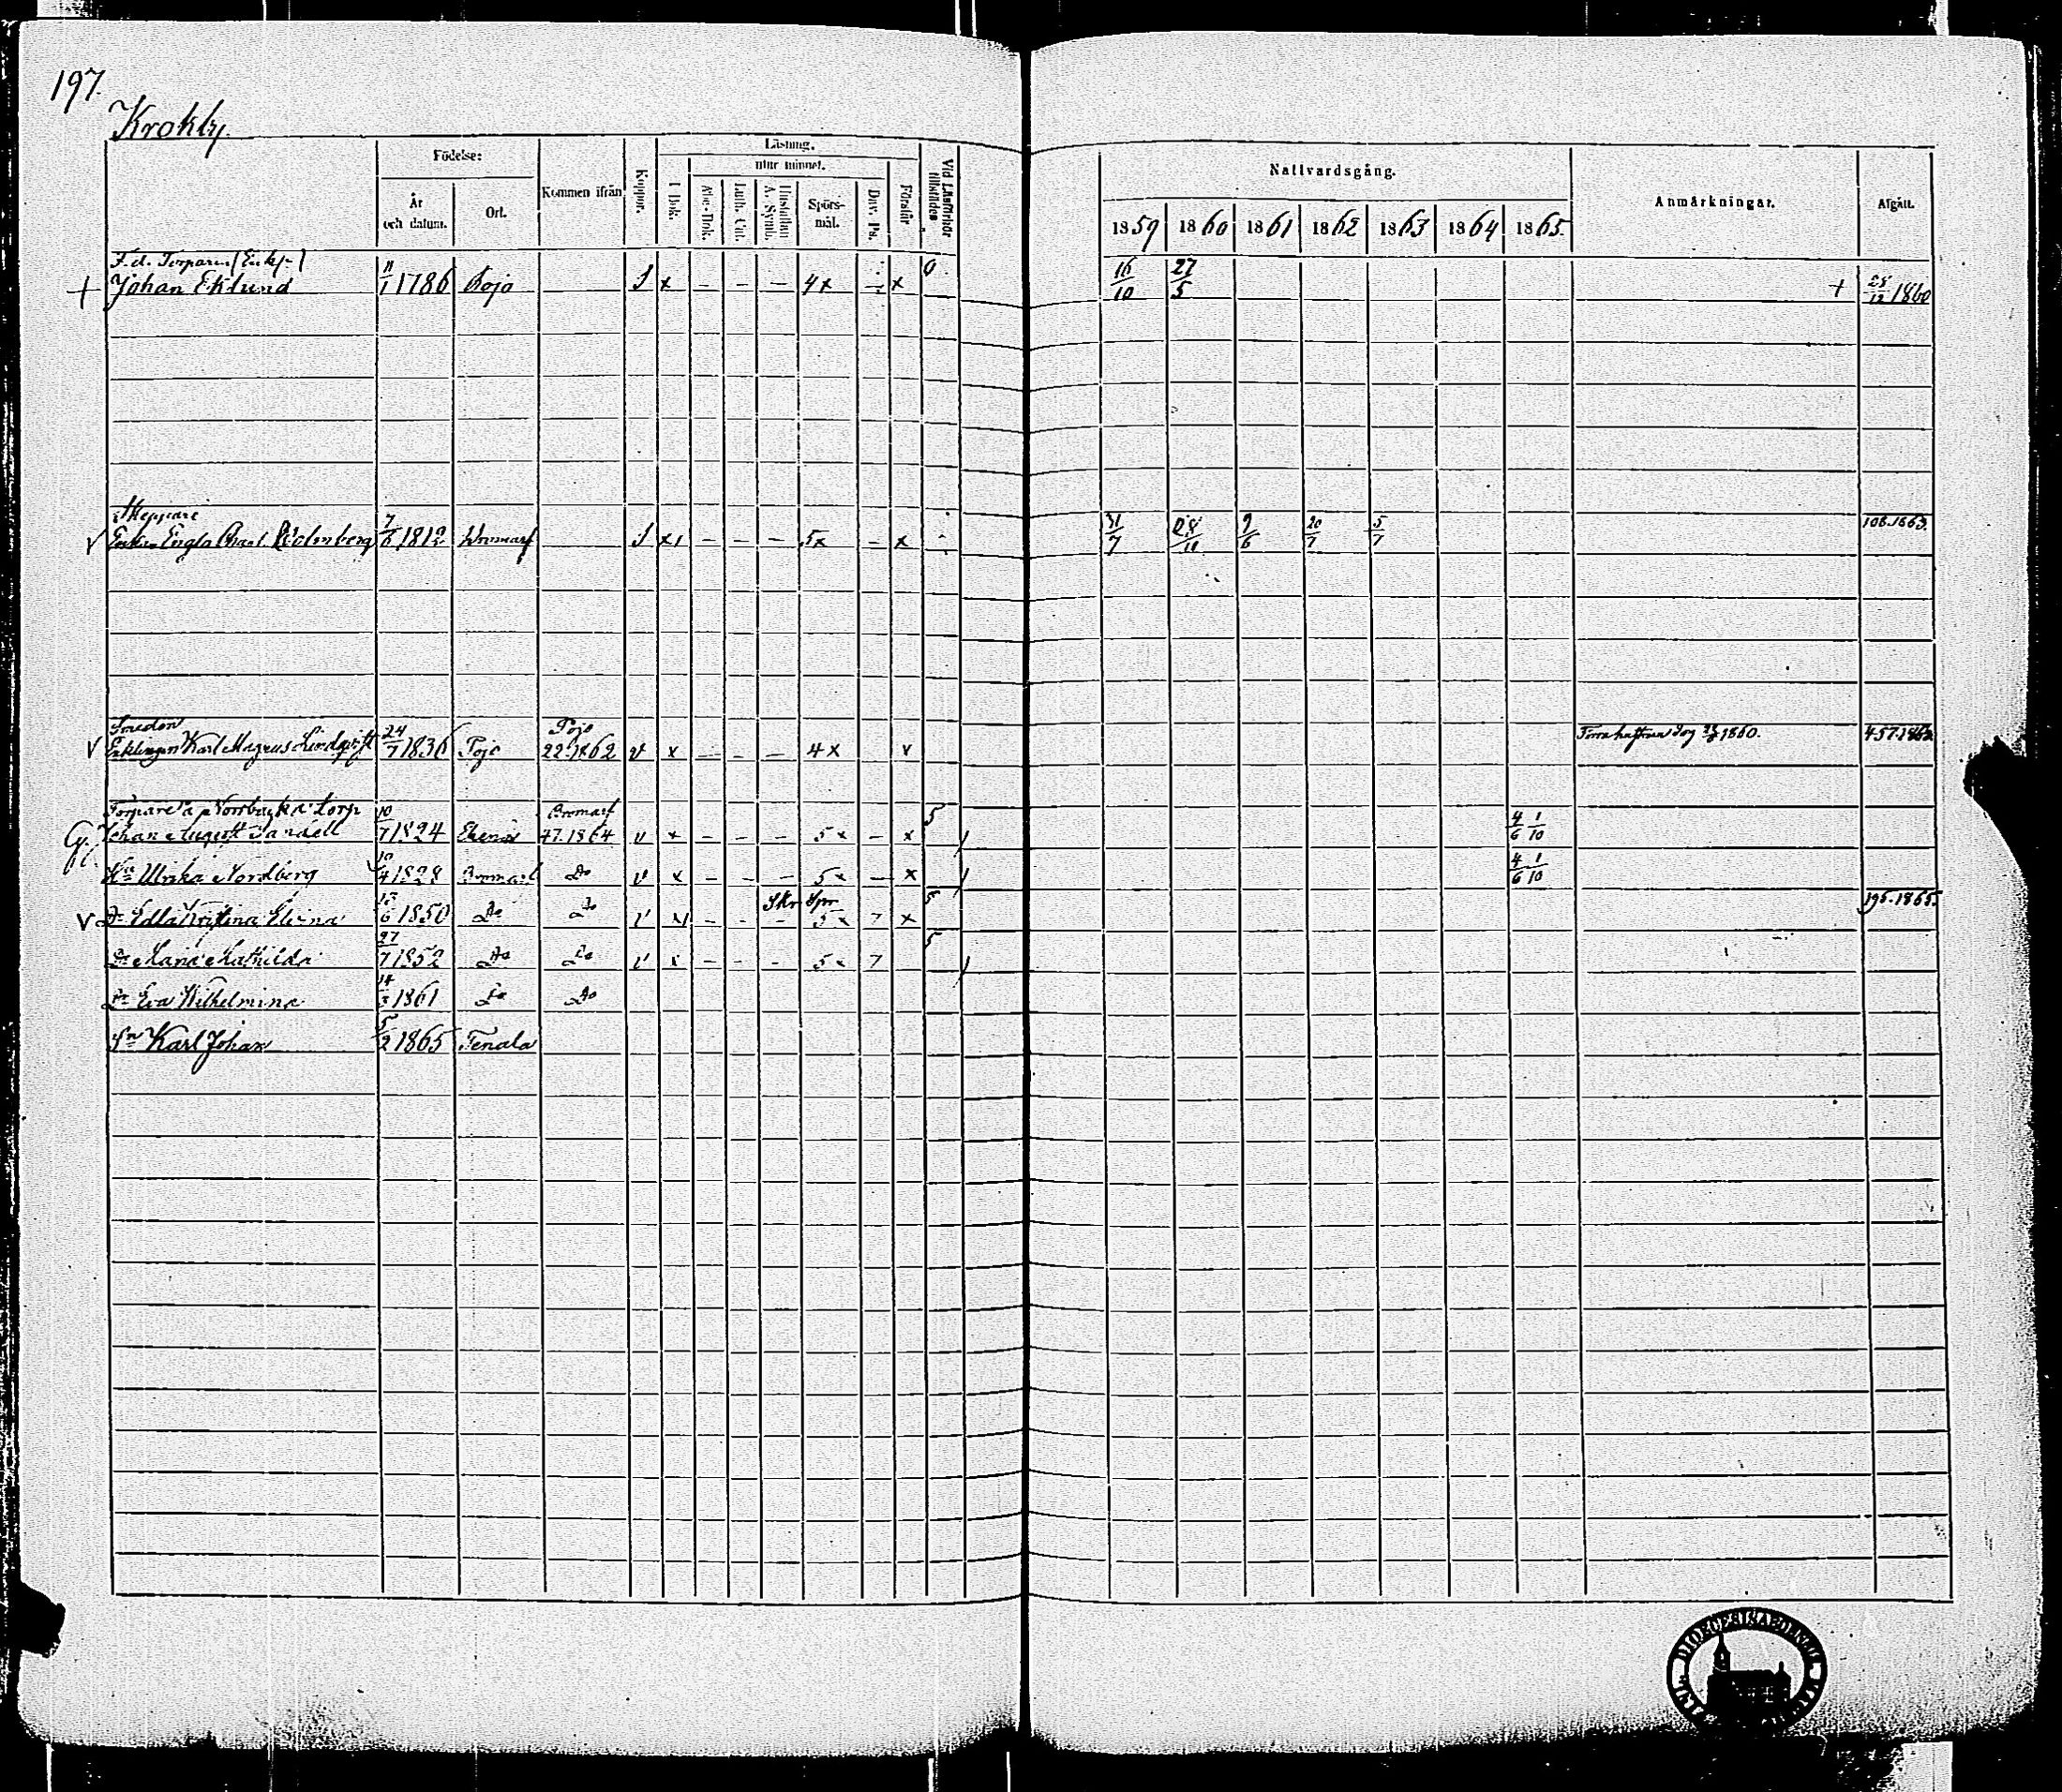 197.
Krokby.
Födelse:
År och datum.
Ort.
Kommen ifrån
Koppor.
Läsning.
I Bok.
utur minnet.
Abc-Bok.
Luth. Cat.
Hustaflan A. Symb.
Spörs-mål.
Dav. Ps.
Förstår
Vid Läsförhör tillstädes
Nattvardsgång.
1859 1860 1861 1862 1863 1864 1865.
Anmärkningar.
Afgått.
F. d. Torparen (Enkl.)
+ Johan Eklund 11/1 1786 Pojo S x – – – 4x – x 16/10 27/5 + 28/12 1860
Skeppare
V Enkan Engla Charl. Holmberg 7/6 1812 Bromarf S x – – – 5x – x 31/7 28/10 9/6 20/7 5/7 106.1863.
Smeden
V Enklingen Karl Magnus Lindqvist 24/7 1836 Pojo Pojo 22.1862 v x – – – 4x v 457.1862
Torpare å Norrbacka torp
G. Johan August Sandell 10/7 1824 Ekenäs Bromarf 47.1864 v x – – – 5x – x 5 4/6 1/10
Hu Ulrika Nordberg 10/4 1828 Bromarf Do v x – – – 5x – x 4/6 1/10
Skr Spr
V Dr Edla Kristina Elvina 13/6 1850 Do Do v x – – – 5x 7 x 5 195.1865.
Dr Maria Mathilda 27/7 1852 Do Do v x – – – 5x 7 5
Dr Eva Wilhelmina 14/3 1861 Do Do
Sn Karl Johan 5/2 1865 Tenala